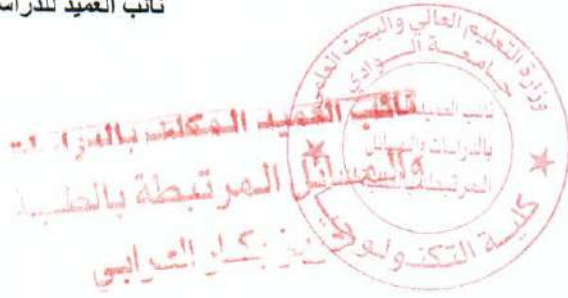 نائب العميد للدراس
وزارة التعليم العالي والبحث العلمي
جامعة الوادي
نائب العميد
بالدراسات والمسائل
المرتبطة
كلية التكنولوجيا
نائب العميد المكلف بالدراسات
والمسائل المرتبطة بالطلبة